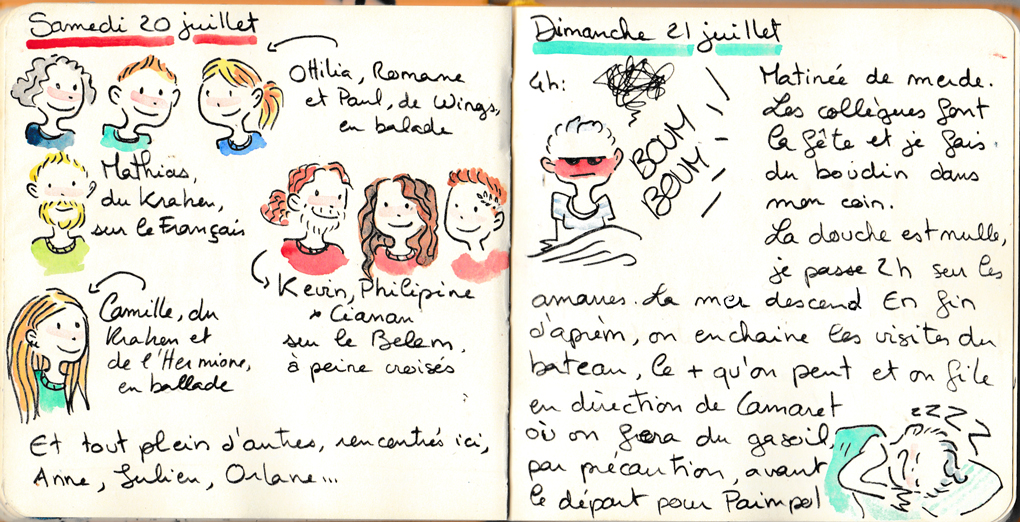 Samedi 20 juillet
Ottilia, Romane
et Paul, de Wings,
en balade
Mathias,
du Kraken,
sur le Français
Kevin, Philipine
& Cianan
sur le Belem,
à peine croisés
Camille, du
Kraken et
de l'Hermione,
en ballade
Et tout plein d'autres, rencontrés ici,
Anne, Julien, Orlane...
Dimanche 21 juillet
4h:
BOUM
BOUM
Matinée de merde.
Les collègues font
la fête et je fais
du boudin dans
mon coin.
La douche est nulle,
je passe 2h sur les
amarres. La mer descend En fin
d'aprèm, on enchaine les visites du
bateau, le + qu'on peut et on file
en direction de Camaret
où on fera du gasoil,
par précaution, avant
le départ pour Paimpol
zzzz